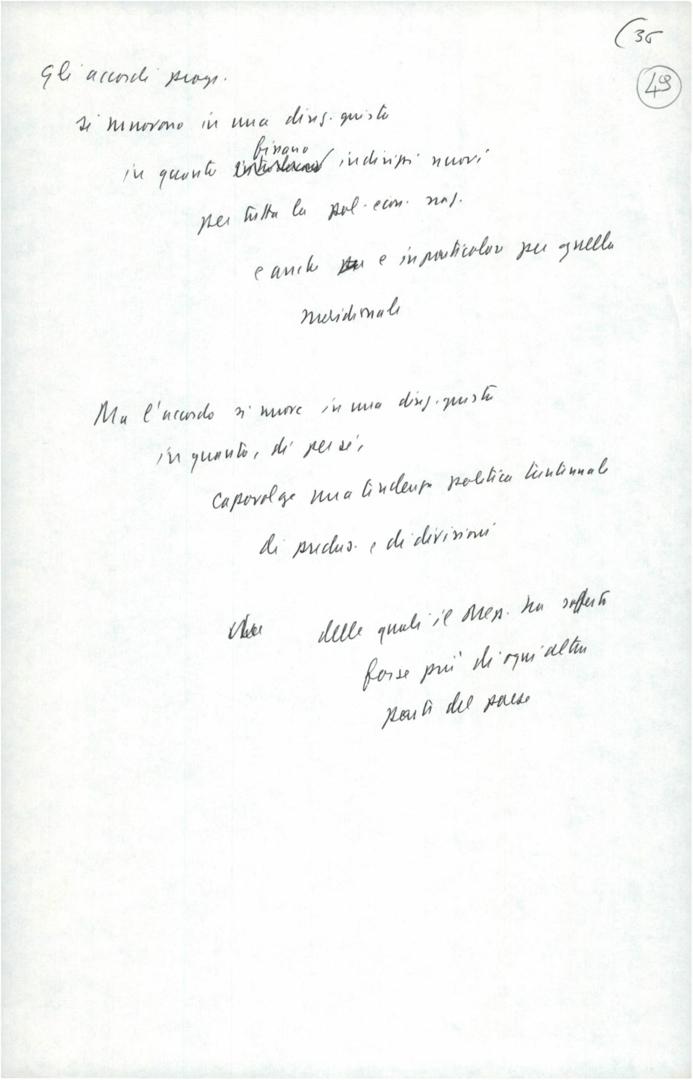 (36
49
Gli accordi progr.
si muovono in una direz. giusta
fissano
in quanto indirizzi nuovi
per tutta la pol. econ. naz.
e anche e in particolare per quella
meridionale
Ma l'accordo si muove in una direz. giusta
in quanto, di per sé,
capovolge una tendenza politica trentennale
di preclus. e di divisioni
delle quali il Mezz. ha sofferto
forse più di ogni altra
parte del paese